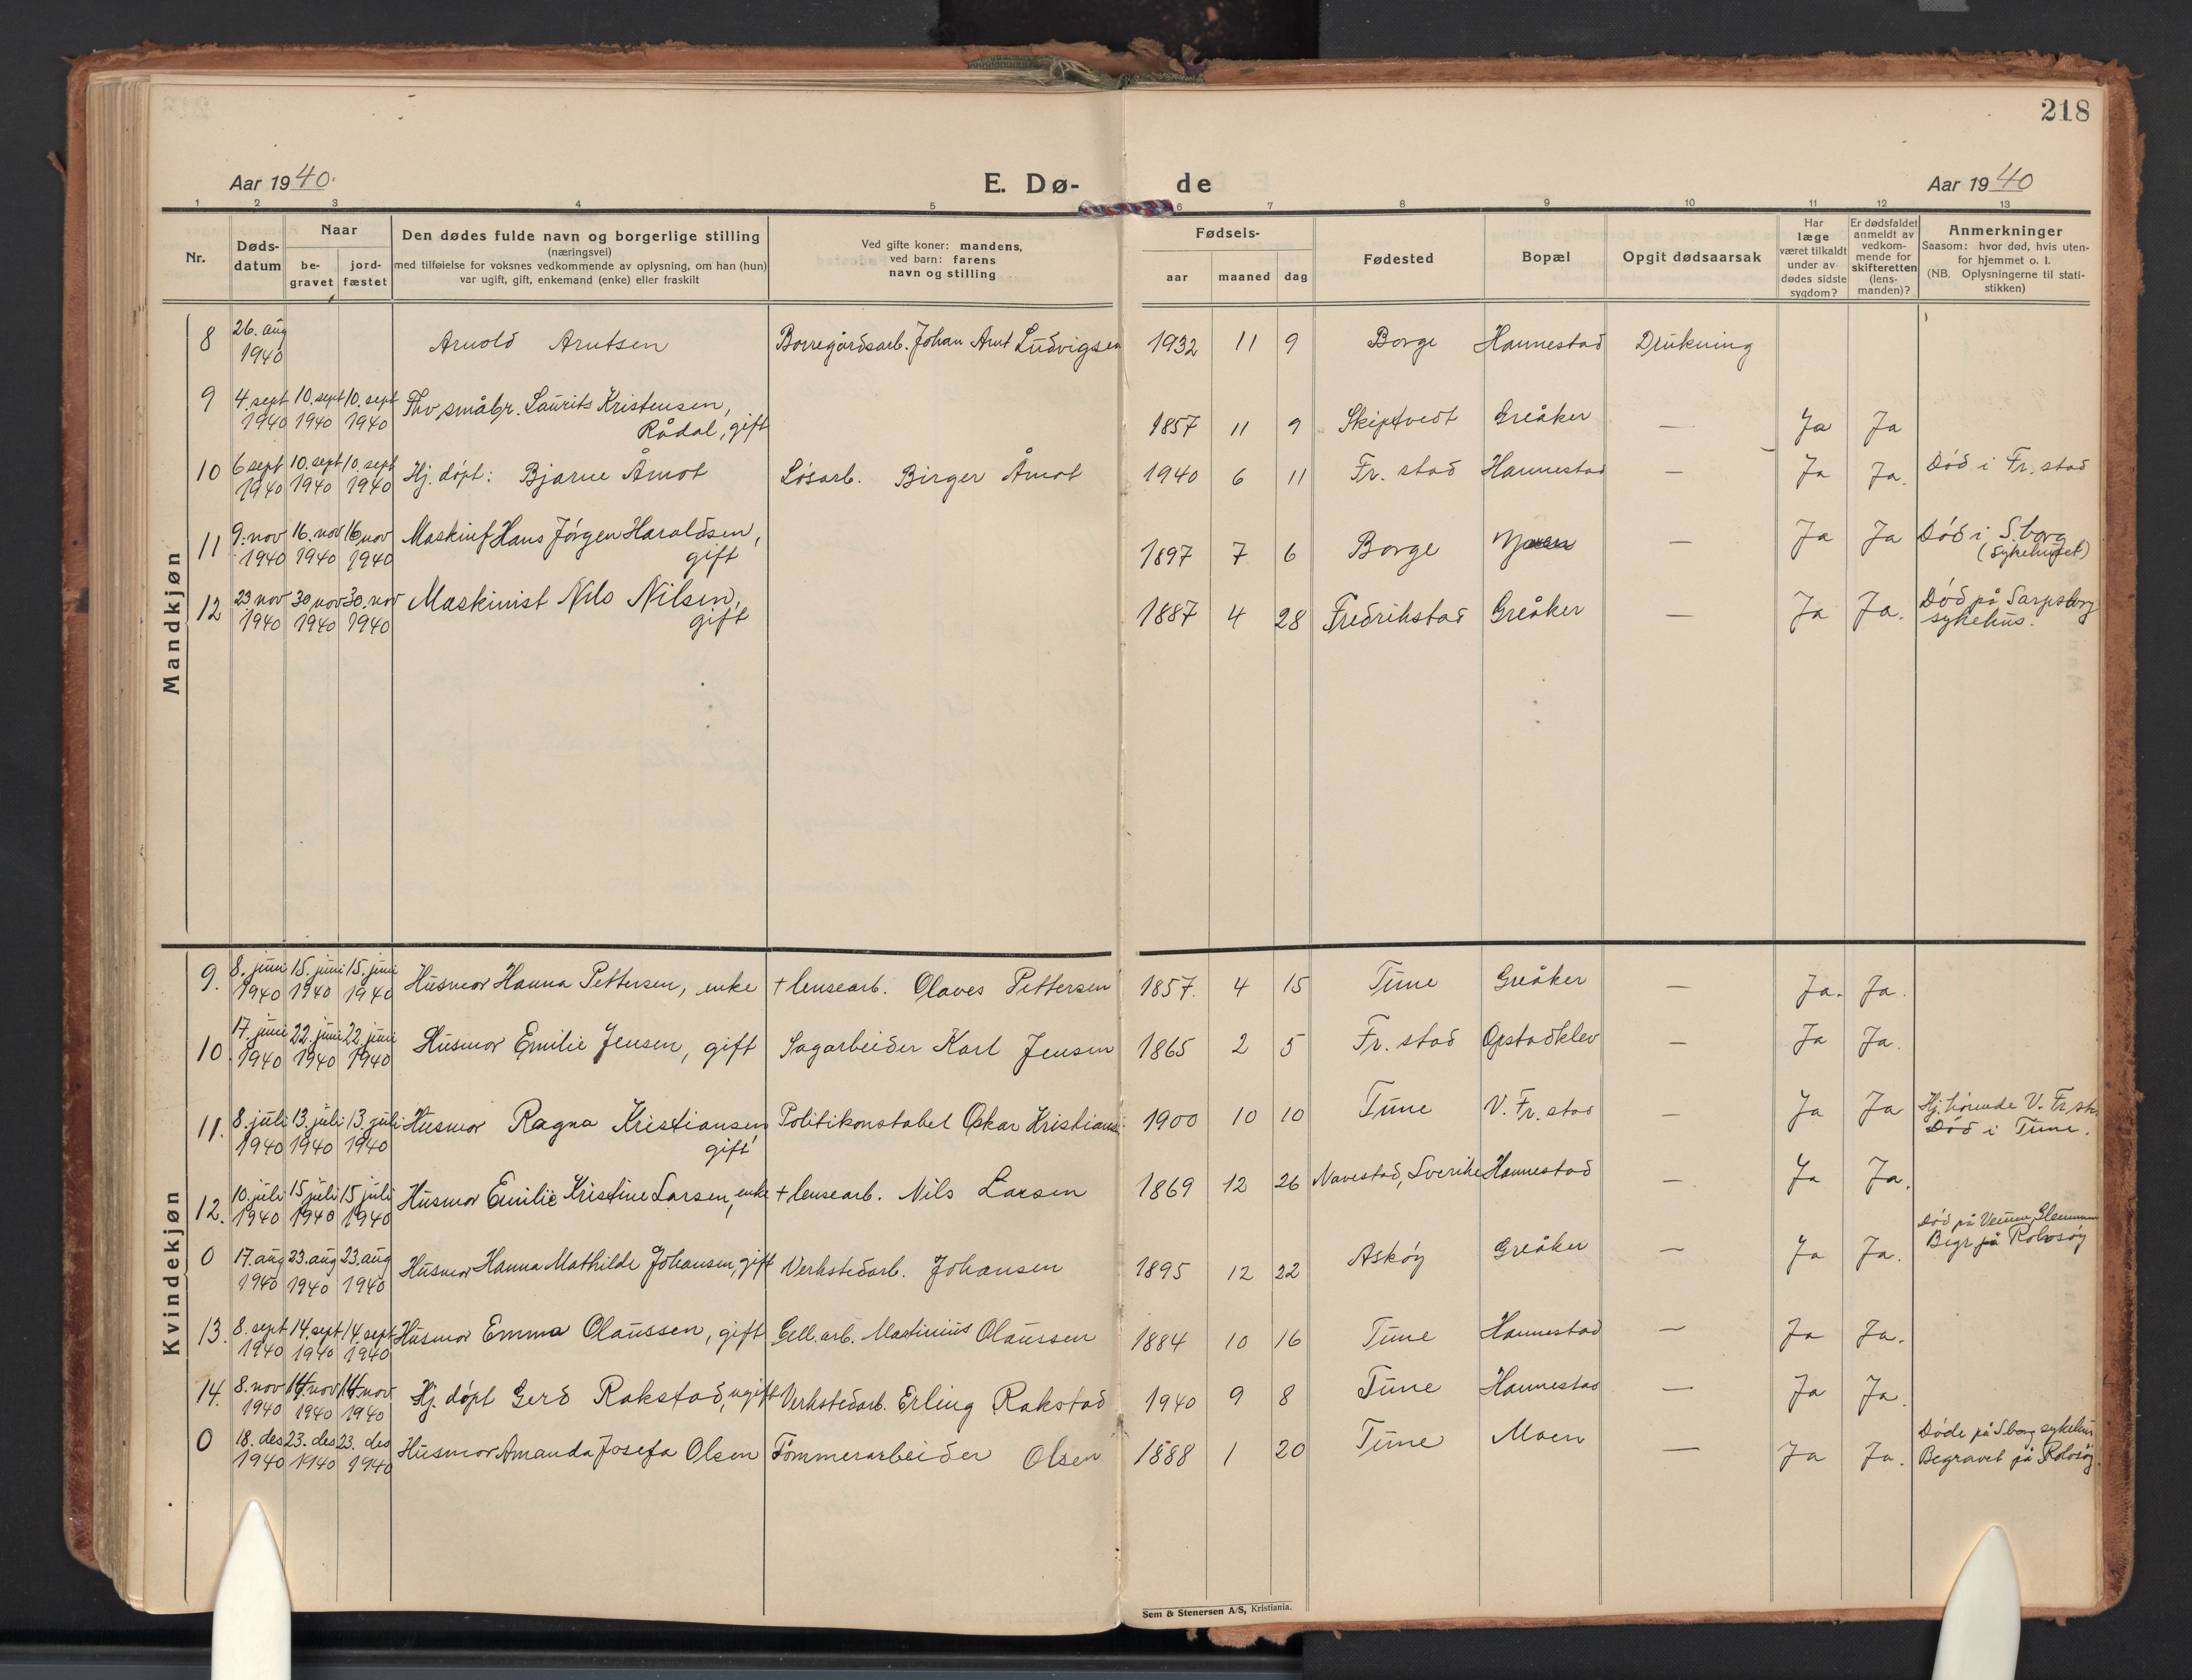 218
Aar 1940.
E. Dø-
de
Aar 1940
1 2 3 4 5 6 7 8 9 10 11 12 13
Nr.
Døds-
datum
Naar
be-
gravet
jord-
fæstet
Den dødes fulde navn og borgerlige stilling
(næringsvei)
med tilføielse for voksnes vedkommende av oplysning, om han (hun)
var ugift, gift, enkemand (enke) eller fraskilt
Ved gifte koner: mandens,
ved barn: farens
navn og stilling
Fødsels-
aar
maaned
dag
Fødested
Bopæl
Opgit dødsaarsak
Har
læge
været tilkaldt
under av-
dødes sidste
sygdom?
Er dødsfaldet
anmeldt av
vedkom-
mende for
skifteretten
(lens-
manden)?
Anmerkninger
Saasom: hvor død, hvis uten-
for hjemmet o. l.
(NB. Oplysningerne til stati-
stikken)
Mandkjøn
8 26. aug Arnold Arntsen Borregårdsarb. Johan Arnt Ludvigsen 1932 11 9 Borge Hannestad Drukning
1940
9 4. sept 10. sept 10. sept Fhv småbr. Laurits Kristensen,
1940 1940 1940 Rådal, gift 1857 11 9 Skiptvedt Greåker — Ja Ja
10 6 sept 10. sept 10. sept Hj. døpt: Bjarne Åmot Løsarb. Birger Åmot 1940 6 11 Fr. stad Hannestad — Ja Ja. Död i Fr. stad
1940 1940 1940
11 9. nov 16. nov 16 nov Maskinf Hans Jörgen Haraldsen, Ja Ja Död i S.borg
1940 1940 1940 gift 1897 7 6 Borge — (sykehuset)
12 23 nov 30 nov 30. nov Maskinist Nils Nilsen, Död på Sarpsborg
1940 1940 1940 gift 1887 4 28 Fredrikstad Greåker — Ja Ja. sykehus.
Kvindekjøn
9. 8. juni 15. juni 15. juni Husmor Hanna Pettersen, enke + lensearb. Olaves Pettersen 1857. 4 15 Tune Greåker — Ja. Ja.
1940 1940 1940
10. 17. juni 22. juni 22. juni Husmor Emilie Jensen, gift Sagarbeider Karl Jensen 1865 2 5 Fr. stad Opstadklev — Ja Ja.
1940 1940 1940
11. 8. juli 13. juli 13. juli Husmor Ragna Kristiansen Politikonstabel Oskar Kristians. 1900 10 10 Tune V. Fr. stad — Ja Ja Hj. hörende V. Fr. st.
1940 1940 1940 gift Död i Tune.
12. 10. juli 15 juli 15 juli Husmor Emilie Kristine Larsen, enke + lensearb. Nils Larsen 1869 12 26 Navestad, Sverike Hannestad — Ja Ja.
1940 1940 1940
0 17. aug 23. aug 23. aug Husmor Hanna Mathilde Johansen, gift Verkstedarb. Johansen 1895 12 22 Asköy Greåker — Ja Ja. Död på Veum, Glemmen
1940 1940 1940 Begr på Rolvsöy
13. 8. sept 14. sept 14. sept Husmor Emma Olaussen, gift Cell. arb. Martinius Olaussen 1884 10 16 Tune Hannestad — Ja Ja.
1940 1940 1940
14. 8. nov 14. nov 14 nov Hj. döpt Gerd Rakstad, ugift Verkstedarb. Erling Rakstad 1940 9 8 Tune Hannestad — Ja Ja.
1940 1940 1940
0 18. des 23. des 23. des Husmor Amanda Josefa Olsen Tömmerarbeider Olsen 1888 1 20 Tune Moen — Ja Ja. Døde på S.borg sykehus
1940 1940 1940 Begravet på Rolvsöy.
Sem & Stenersen A/S, Kristiania.